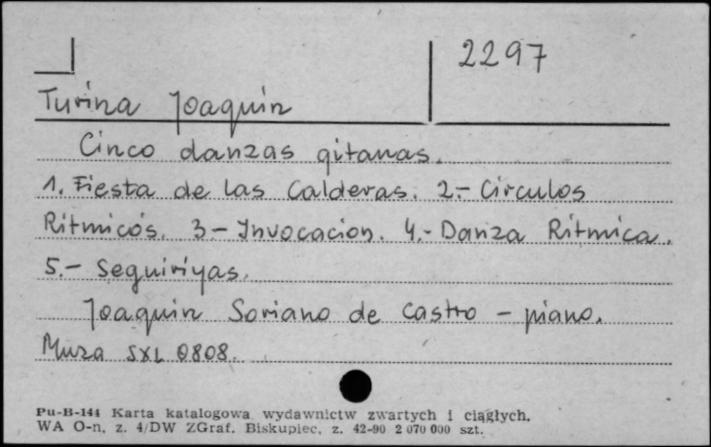 2297
Turina Joaquin
Cinco danzas gitanas.
1. Fiesta de las Calderas. 2.- Circulos
Ritmicos. 3.- Invocacion. 4.- Danza Ritmica.
5.- Seguiriyas.
Joaquin Soriano de Castro - piano.
Muza SXL 0808.
Pu-B-144 Karta katalogowa wydawnictw zwartych i ciągłych.
WA O-n, z. 4/DW ZGraf. Biskupiec, z. 42-90 2 070 000 szt.